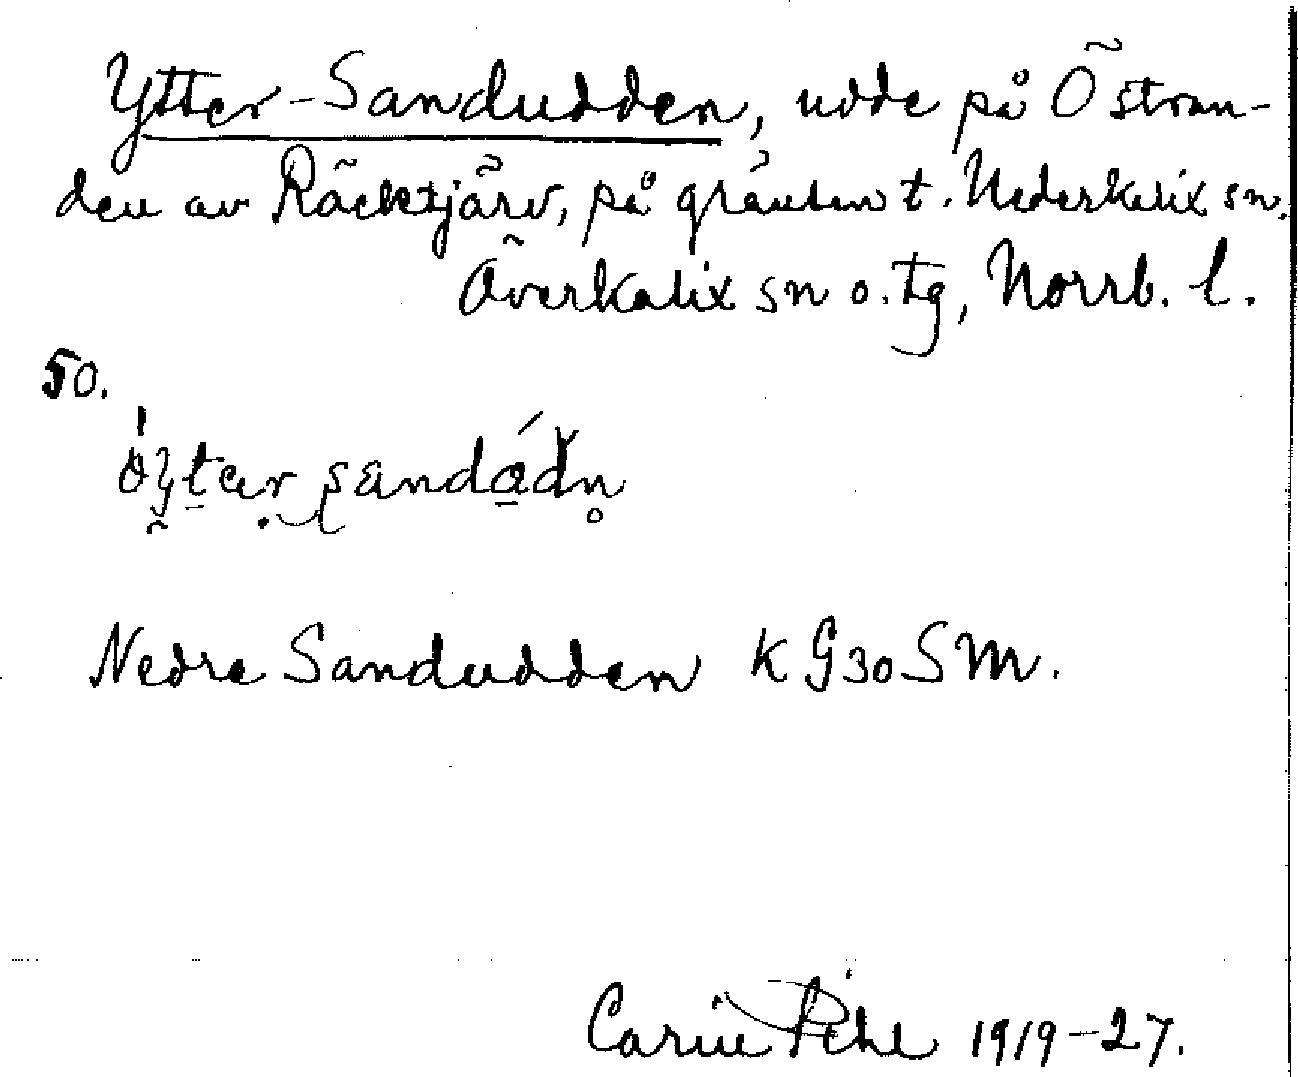 Ytter-Sandudden, udde på Östran-
den av Räcktjärv, på gränsen t. Nederkalix sn.
Överkalix sn o. tg, Norrb. l.
50.
Nedre Sandudden K G30SM.
Carin Pihl 1919-27.